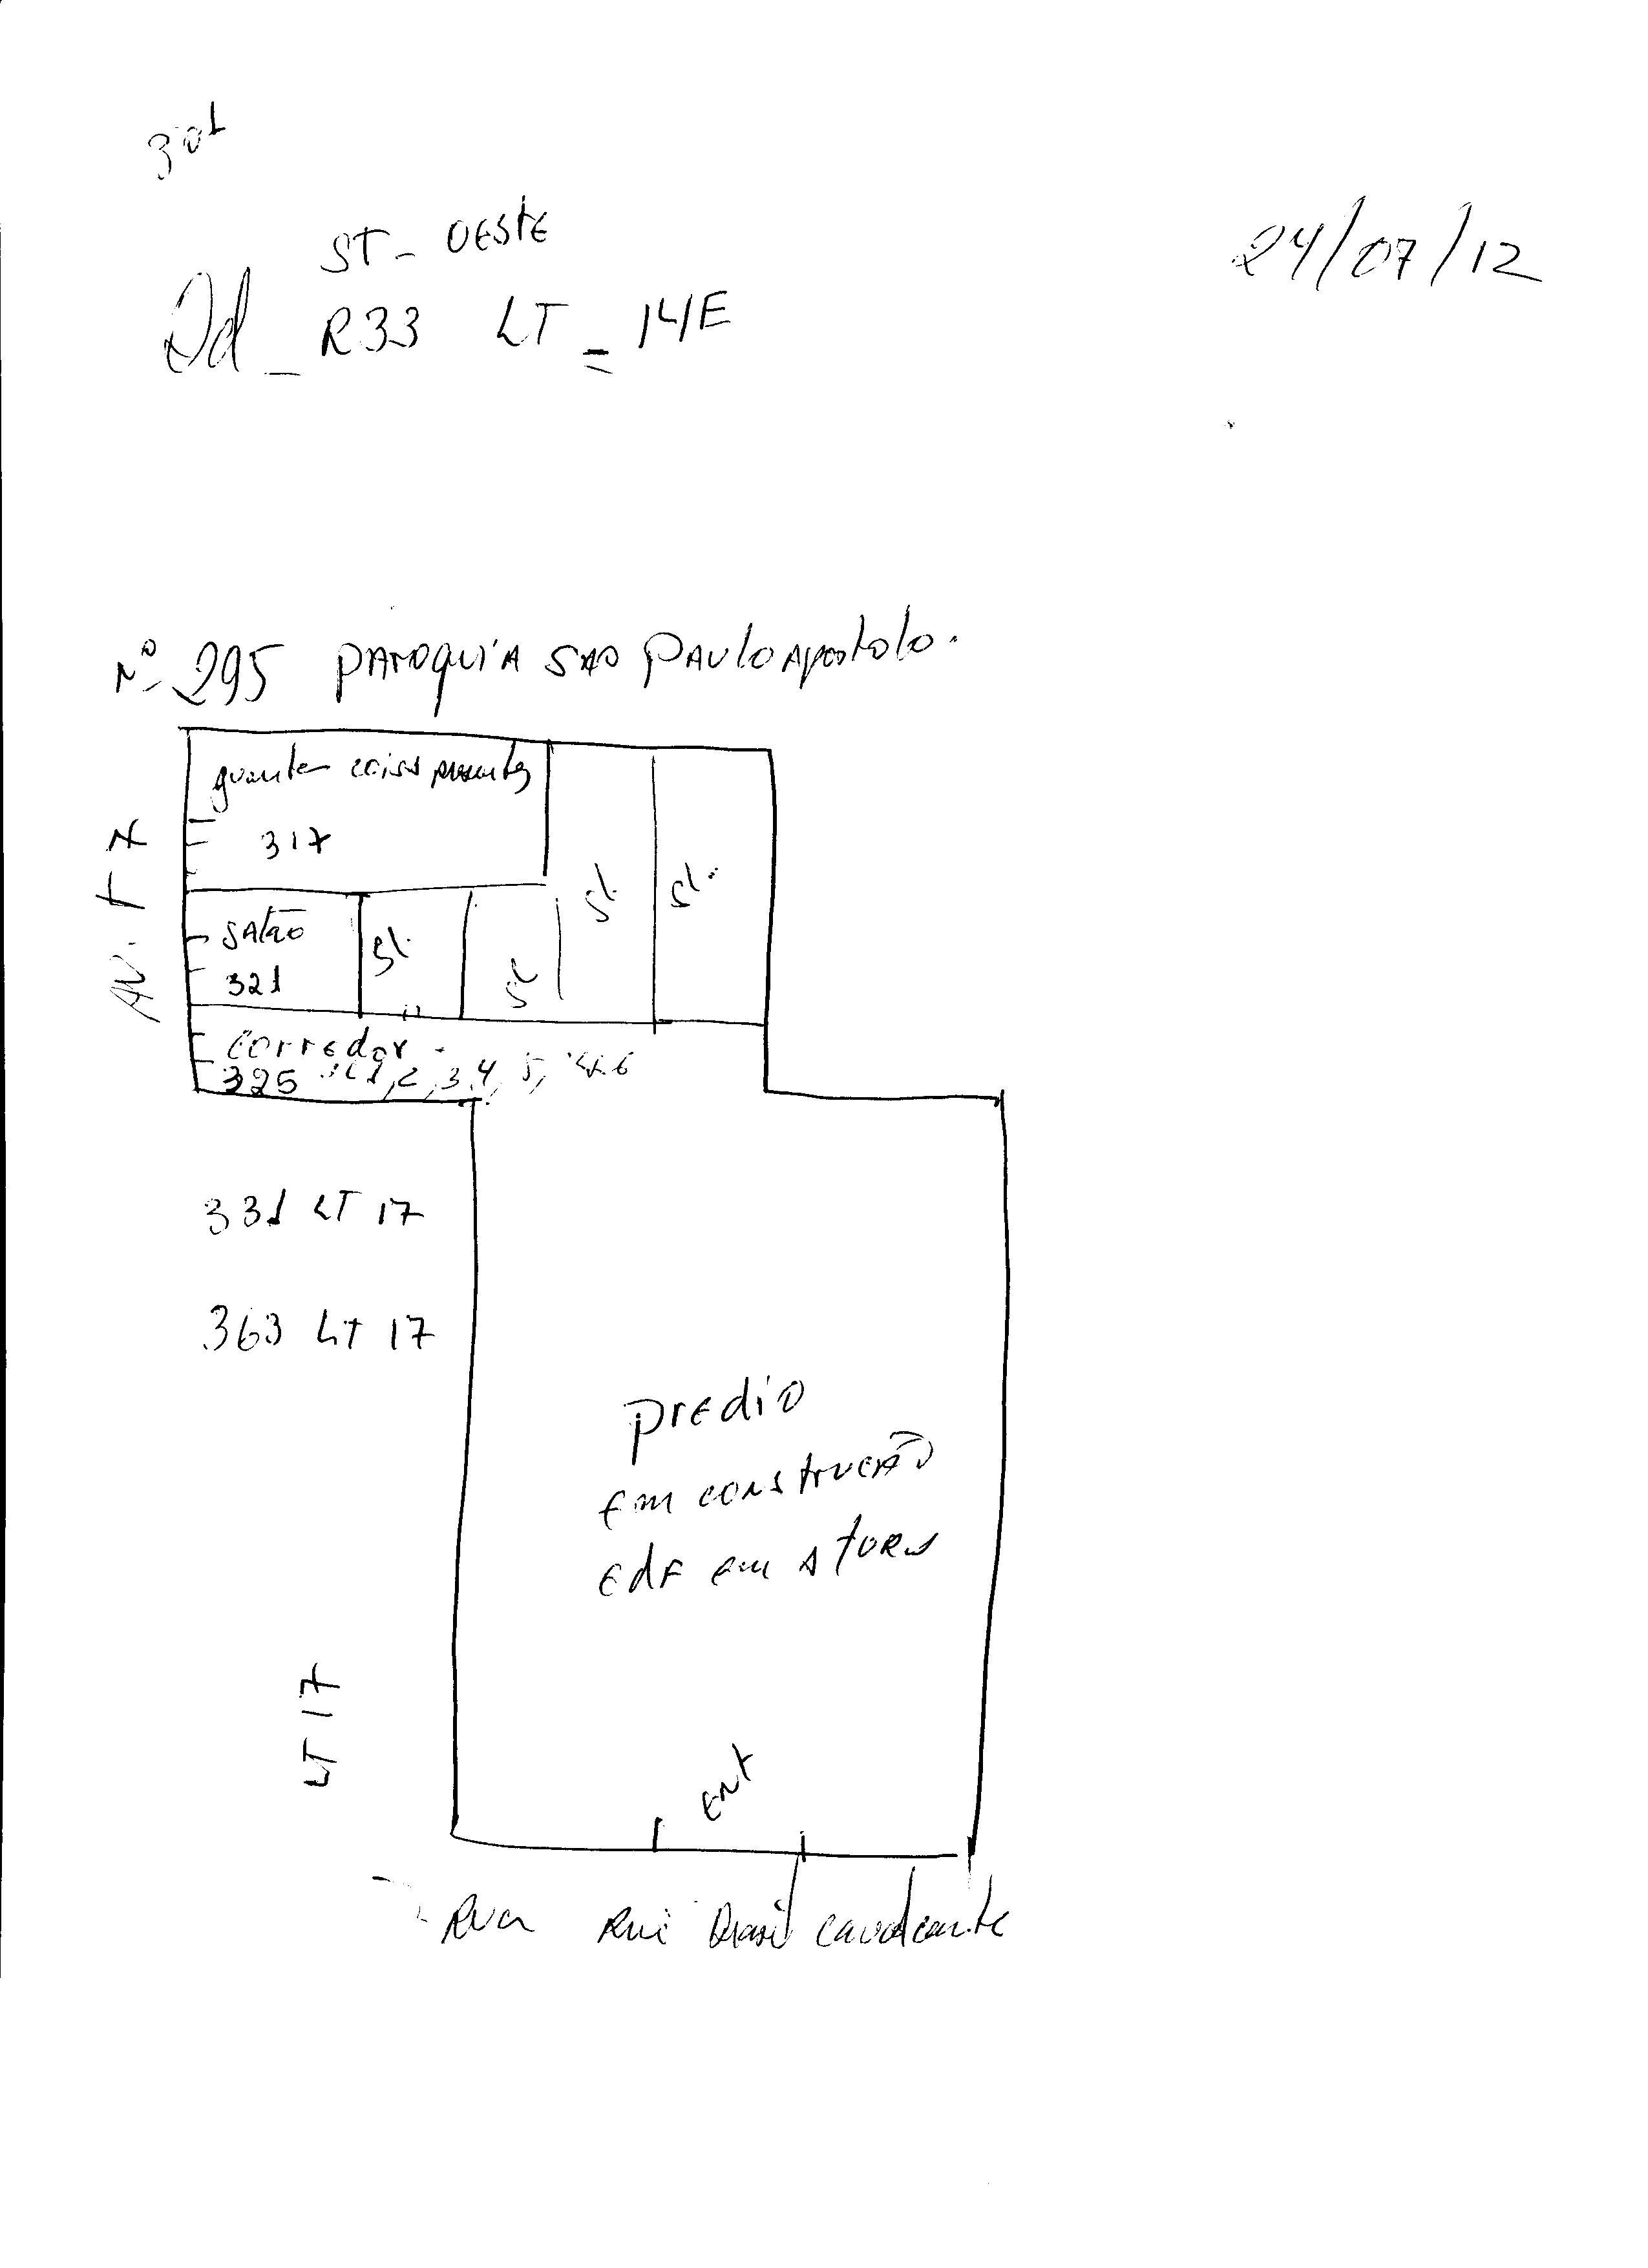 301
ST - OESTE
24/07/12
Qd - R33 LT = 14E
Nº 295 PAROQUIA SAO PAULO Apostolo.
317
AV. T 7
SL.
SL.
SALÃO
321
SL.
SL
corredor
325 SL 1, 2, 3, 4, 5, 6
331 LT 17
363 LT 17
prEdiO
Em construçÃO
EdF Em
LT 17
Ent
Rua Rui Brasil cavalcante